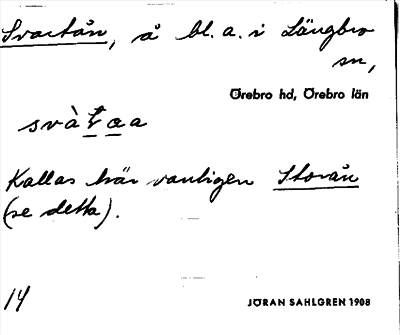 Svartån, å bl. a. i Längbro
sn,
Örebro hd, Örebro län
svàtaa
Kallas här vanligen Storån
(se detta).
14
JÖRAN SAHLGREN 1908